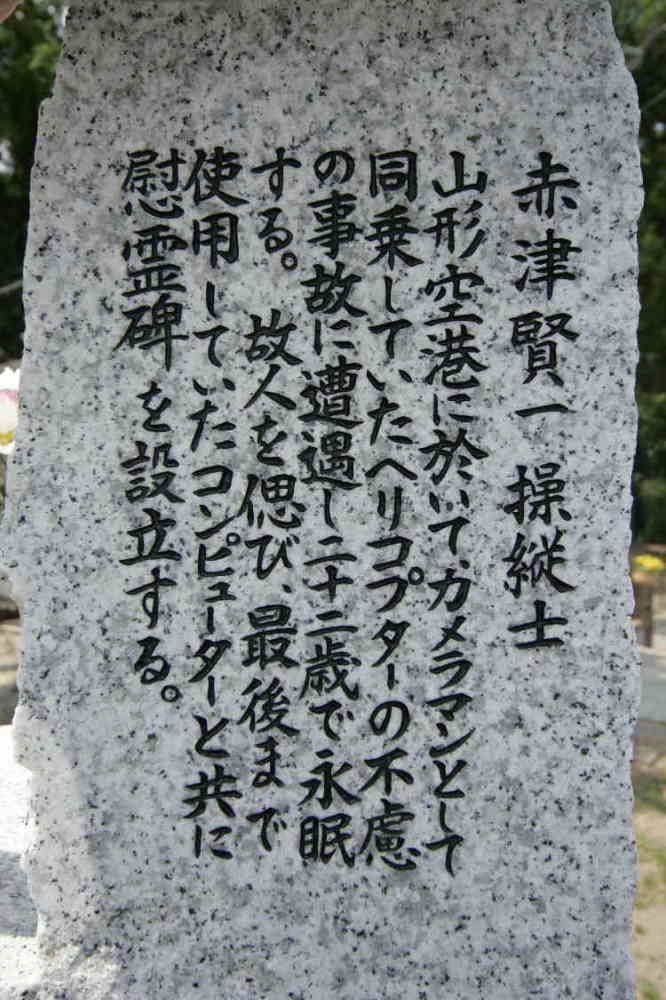 赤津賢一 操縦士
山形空港に於いて、カメラマンとして
同乗していたヘリコプターの不慮
の事故に遭遇し二十二歳で永眠
する。 故人を偲び、最後まで
使用していたコンピューターと共に
慰霊碑を設立する。